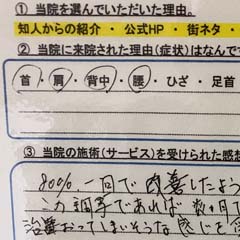 ① 当院を選んでいただいた理由。
知人からの紹介 ・ 公式HP ・ 街ネタ ・
② 当院に来院された理由(症状)はなんです
首 ・ 肩 ・ 背中 ・ 腰 ・ ひざ ・ 足首
③ 当院の施術(サービス)を受けられた感想
80%、一回で改善したよう
この調子であれば数ヶ月で
治ってしまいそうな感じを